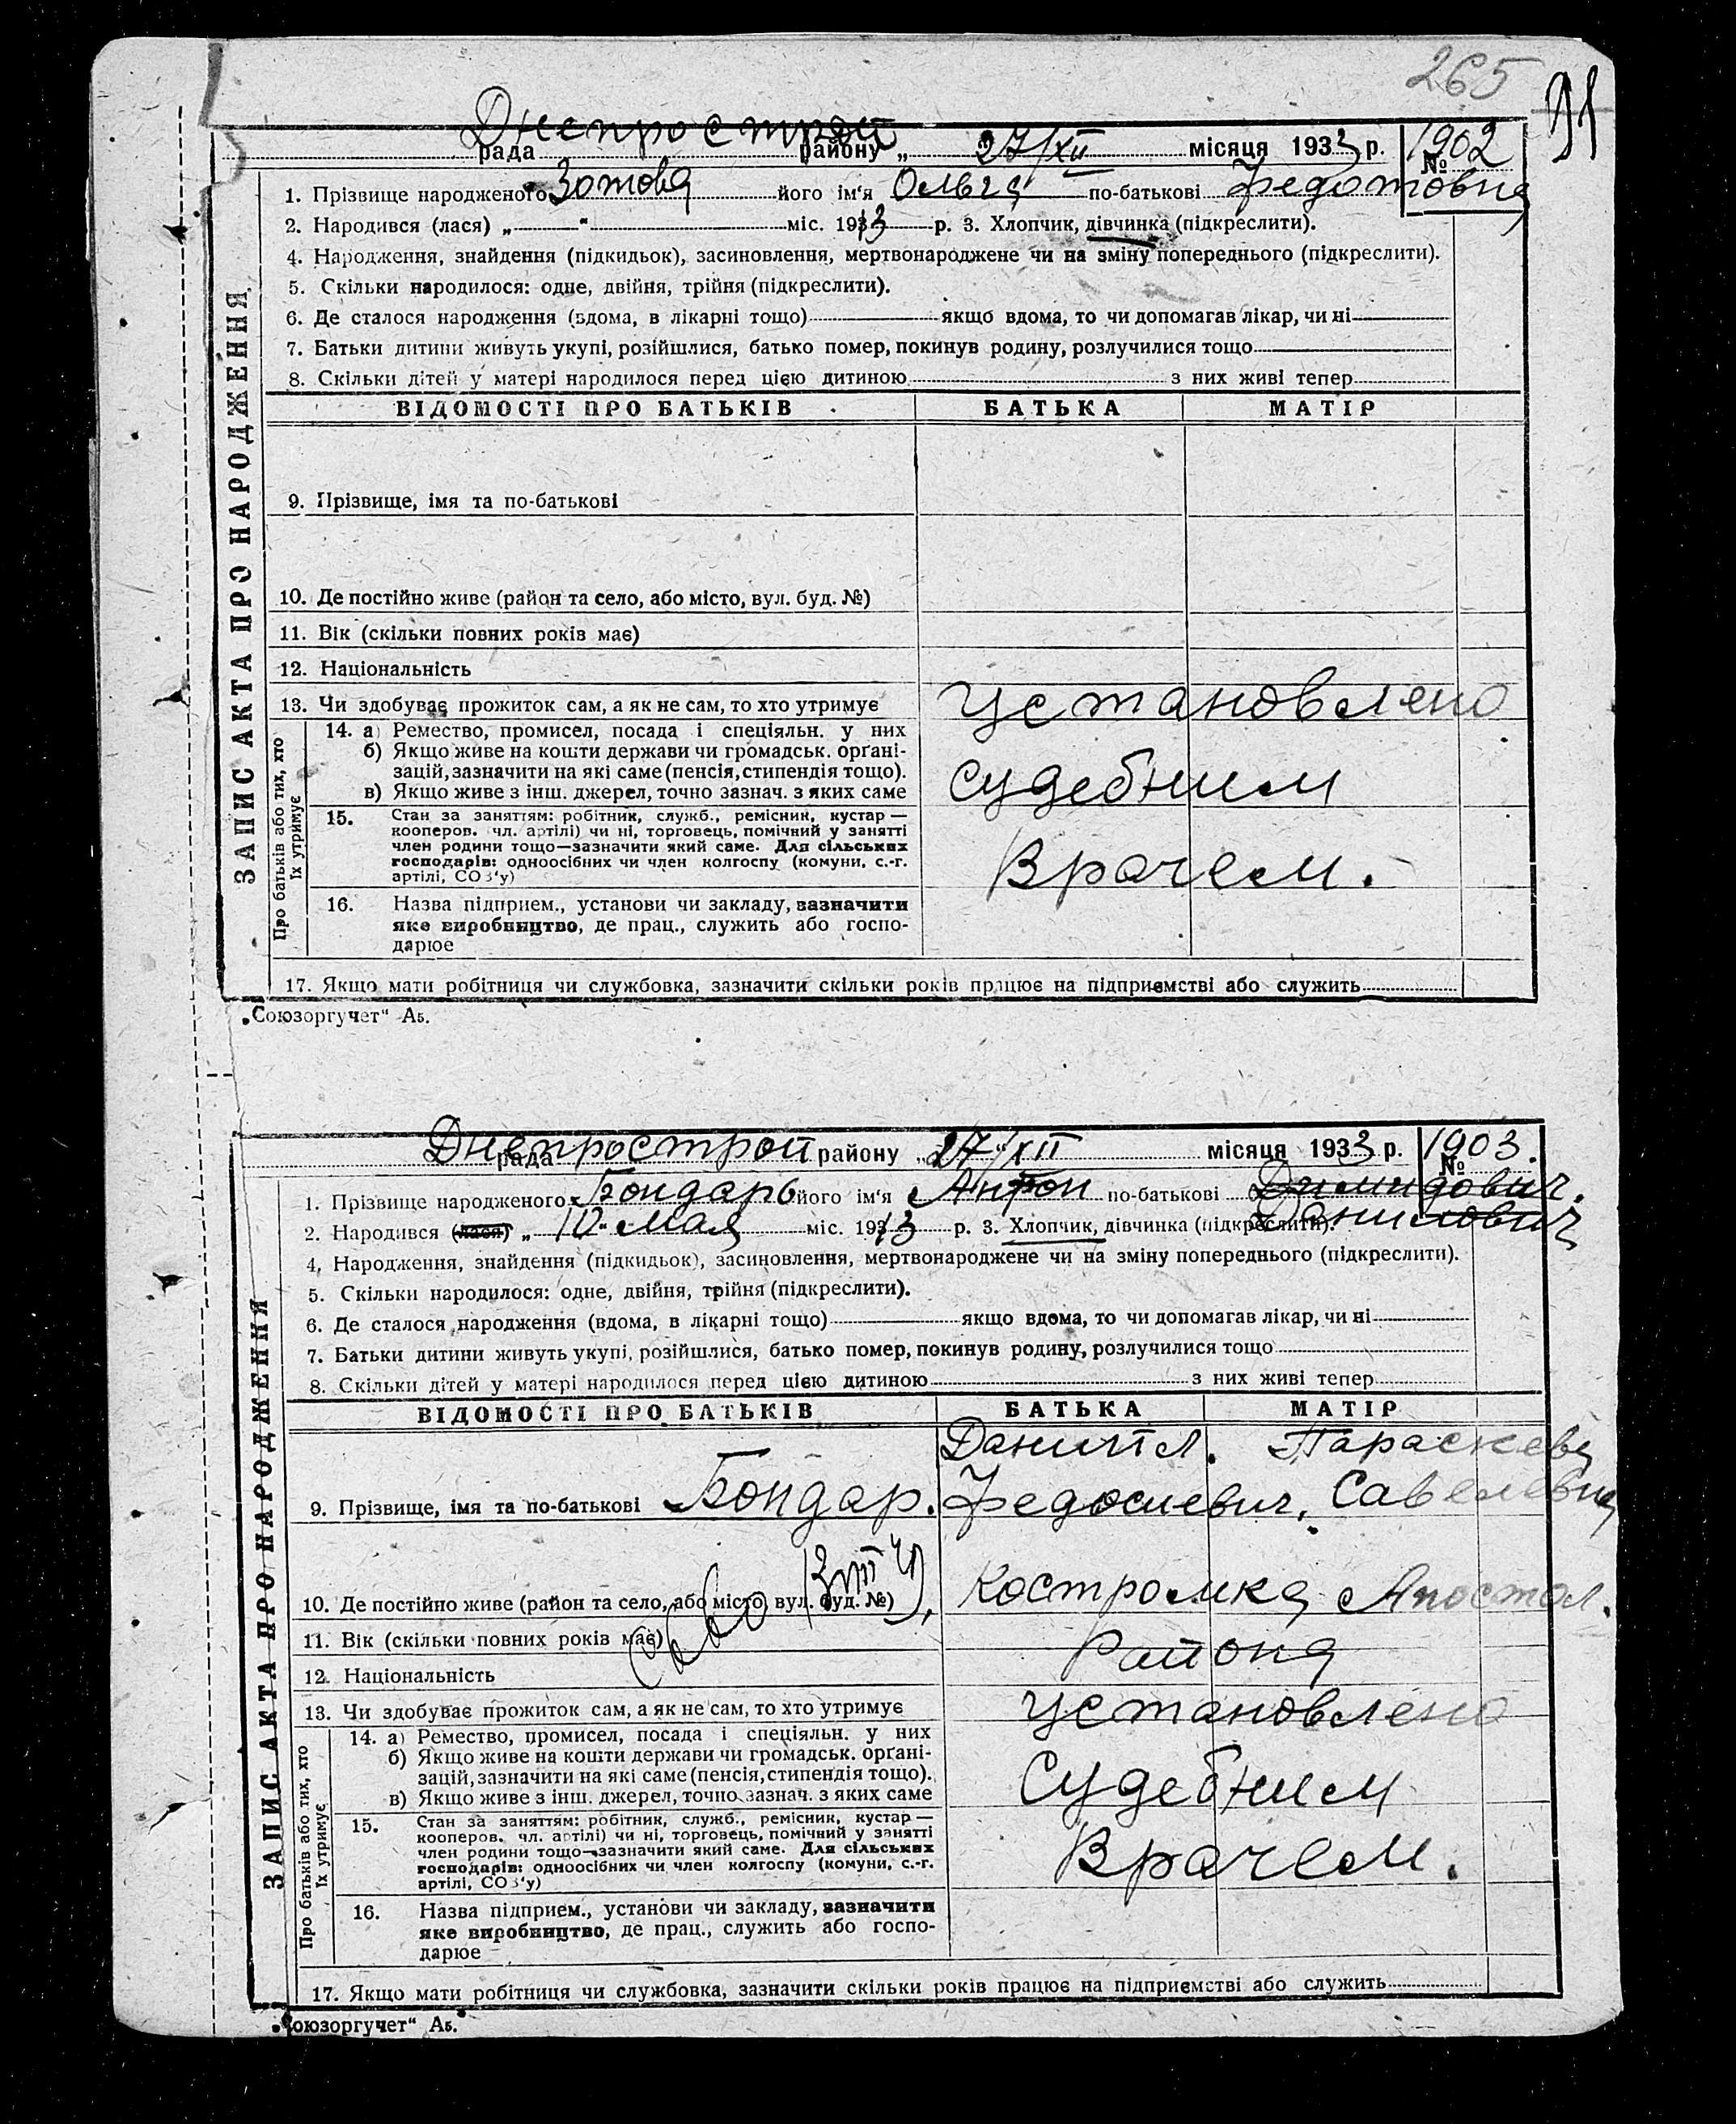 265
91
Днепрострой
рада района „ 27/XII місяця 1933 р. № 1902
1. Прізвище народженого Зотова його ім‘я Ольга по-батькові Федотовна
2. Народився (лася) „ “ міс. 1913 р. 3. Хлопчик, дівчинка (підкреслити).
4. Народження, знайдення (підкидьок), засиновлення, мертвонароджене чи на зміну попереднього (підкреслити).
5. Скільки народилося: одне, двійня, трійня (підкреслити).
6. Де сталося народження (вдома, в лікарні тощо) якщо вдома, то чи допомагав лікар, чи ні
7. Батьки дитини живуть укупі, розійшлися, батько помер, покинув родину, розлучилися тощо
8. Скільки дітей у матері народилося перед цією дитиною з них живі тепер
ЗАПИС АКТА ПРО НАРОДЖЕННЯ
ВІДОМОСТІ ПРО БАТЬКІВ БАТЬКА МАТІР
9. Прізвище, імя та по-батькові
10. Де постійно живе (район та село, або місто, вул. буд. №)
11. Вік (скільки повних років має)
12. Національність
13. Чи здобуває прожиток сам, а як не сам, то хто утримує установлено
Про батьків або тих, хто
їх утримує
14. а) Ремество, промисел, посада і спеціяльн. у них
б) Якщо живе на кошти держави чи громадськ. орґані-
зацій, зазначити на які саме (пенсія, стипендія тощо). судебним
в) Якщо живе з інш. джерел, точно зазнач. з яких саме
15. Стан за заняттям: робітник, служб., ремісник, кустар —
кооперов. чл. артілі) чи ні, торговець, помічний у занятті
член родини тощо—зазначити який саме. Для сільських
господарів: одноосібних чи член колгоспу (комуни, с.-г. Врачем.
артілі, СОЗ‘у)
16. Назва підприєм., установи чи закладу, зазначити
яке виробництво, де прац., служить або госпо-
дарює
17. Якщо мати робітниця чи службовка, зазначити скільки років працює на підприємстві або служить
„Союзоргучет“ Аб.
Днепрострой
рада району „ 27/XII місяця 1933 р. № 1903.
1. Прізвище народженого Бондарь його ім‘я Антон по-батькові
Данилович
2. Народився (лася) „ 10 “ мая міс. 1913 р. 3. Хлопчик, дівчинка (підкреслити).
4. Народження, знайдення (підкидьок), засиновлення, мертвонароджене чи на зміну попереднього (підкреслити).
5. Скільки народилося: одне, двійня, трійня (підкреслити).
6. Де сталося народження (вдома, в лікарні тощо) якщо вдома, то чи допомагав лікар, чи ні
7. Батьки дитини живуть укупі, розійшлися, батько помер, покинув родину, розлучилися тощо
8. Скільки дітей у матері народилося перед цією дитиною з них живі тепер
ЗАПИС АКТА ПРО НАРОДЖЕННЯ
ВІДОМОСТІ ПРО БАТЬКІВ БАТЬКА МАТІР
Даниил. Параскева
9. Прізвище, імя та по-батькові Бондар. Федосиевич. Савелевна
10. Де постійно живе (район та село, або місто, вул. буд. №) Костромка Апостол.
11. Вік (скільки повних років має) Района
12. Національність
13. Чи здобуває прожиток сам, а як не сам, то хто утримує установлено
Про батьків або тих, хто
їх утримує
14. а) Ремество, промисел, посада і спеціяльн. у них
б) Якщо живе на кошти держави чи громадськ. орґані-
зацій, зазначити на які саме (пенсія, стипендія тощо). Судебним
в) Якщо живе з інш. джерел, точно зазнач. з яких саме
15. Стан за заняттям: робітник, служб., ремісник, кустар —
кооперов. чл. артілі) чи ні, торговець, помічний у занятті
член родини тощо—зазначити який саме. Для сільських
господарів: одноосібних чи член колгоспу (комуни, с.-г. Врачем.
артілі, СОЗ‘у)
16. Назва підприєм., установи чи закладу, зазначити
яке виробництво, де прац., служить або госпо-
дарює
17. Якщо мати робітниця чи службовка, зазначити скільки років працює на підприємстві або служить
„Союзоргучет“ Аб.